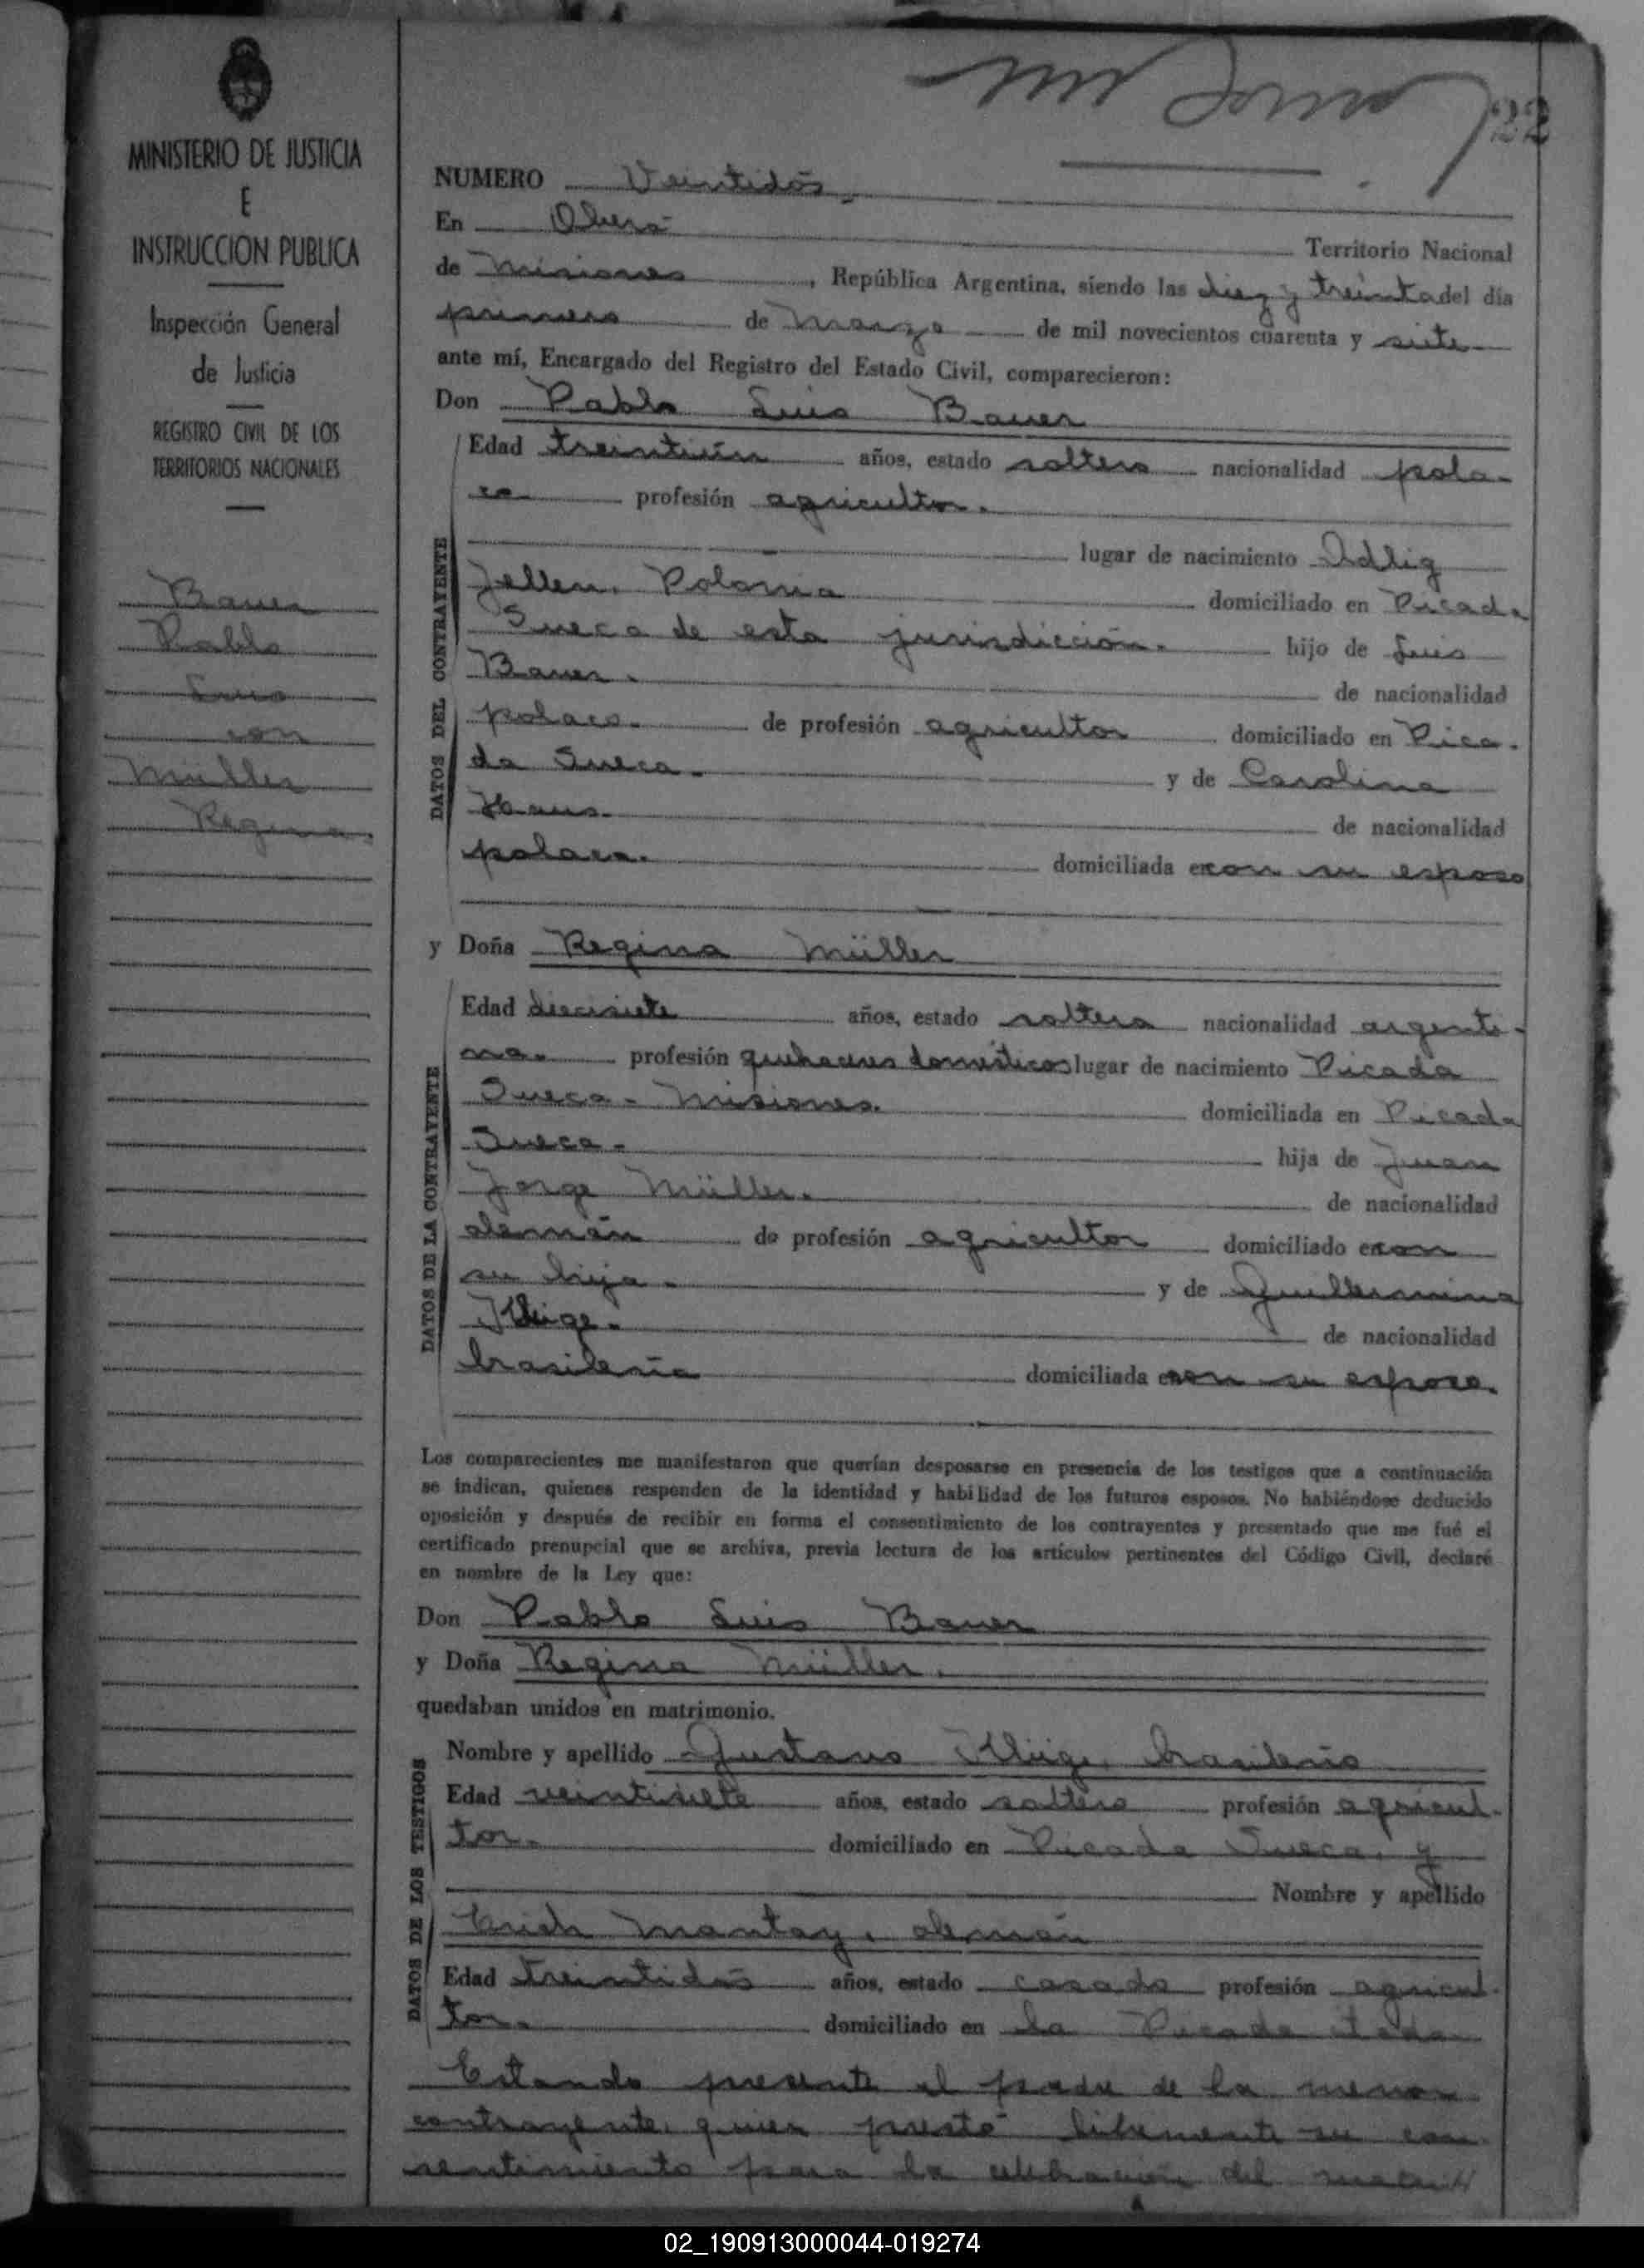 22
MINISTERIO DE JUSTICIA
E
INSTRUCCION PUBLICA
Inspección General
de Justicia
REGISTRO CIVIL DE LOS
TERRITORIOS NACIONALES
Bauer
Pablo
Luis
con
Müller
Regina
NUMERO Veintidós
En Oberá Territorio Nacional
de Misiones, República Argentina, siendo las diez y treinta del día
primero de Marzo de mil novecientos cuarenta y siete
ante mí, Encargado del Registro del Estado Civil, comparecieron:
Don Pablo Luis Bauer
DATOS DEL CONTRAYENTE
Edad treintiún años, estado soltero nacionalidad pola-
co profesión agricultor.
lugar de nacimiento Adlig
Jellen, Polonia domiciliado en Picada
Sueca de esta jurisdicción. hijo de Luis
Bauer. de nacionalidad
polaco. de profesión agricultor domiciliado en Pica-
da Sueca. y de Carolina
Haus. de nacionalidad
polaca. domiciliada en con su esposo
y Doña Regina Müller
DATOS DE LA CONTRAYENTE
Edad diecisiete años, estado soltera nacionalidad argenti-
na. profesión quehaceres domésticos lugar de nacimiento Picada
Sueca - Misiones. domiciliada en Picada
Sueca. hija de Juan
Jorge Müller. de nacionalidad
alemán de profesión agricultor domiciliado en con
su hija. y de Guillermina
Kluge. de nacionalidad
brasileña domiciliada en con su esposo.
Los comparecientes me manifestaron que querían desposarse en presencia de los testigos que a continuación
se indican, quienes responden de la identidad y habilidad de los futuros esposos. No habiéndose deducido
oposición y después de recibir en forma el consentimiento de los contrayentes y presentado que me fué el
certificado prenupcial que se archiva, previa lectura de los artículos pertinentes del Código Civil, declaré
en nombre de la Ley que:
Don Pablo Luis Bauer
y Doña Regina Müller.
quedaban unidos en matrimonio.
DATOS DE LOS TESTIGOS
Nombre y apellido Gustavo Klüge, brasileño
Edad veintisiete años, estado soltero profesión agricul-
tor. domiciliado en Picada Sueca, y
Nombre y apellido
Erich Mantay, alemán
Edad treintidós años, estado casado profesión agricul-
tor. domiciliado en la Picada
Estando presente el padre de la menor
contrayente, quien prestó libremente su con
sentimiento para la celebración del
02_190913000044-019274